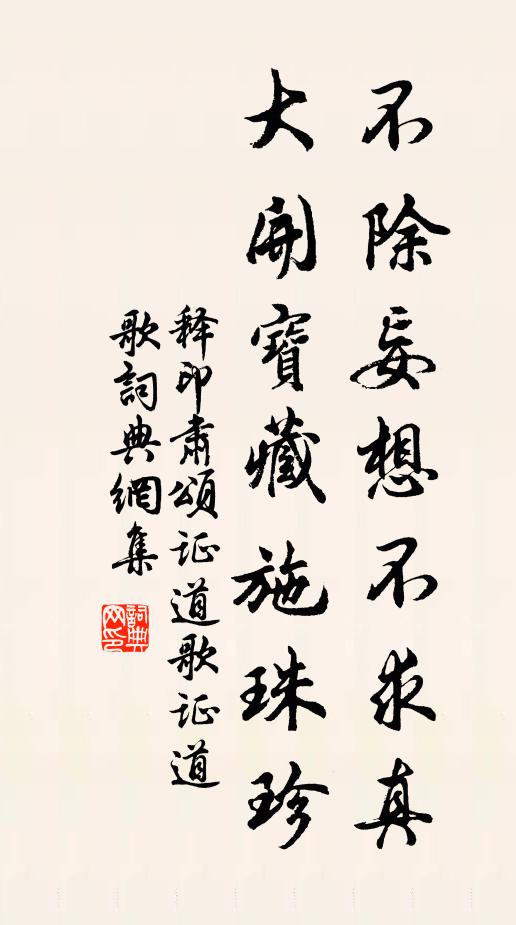 不除妄想不求真
大開寶藏施珠珍
释印肅頌证道歌证道
歌詞典網集
詞典网印